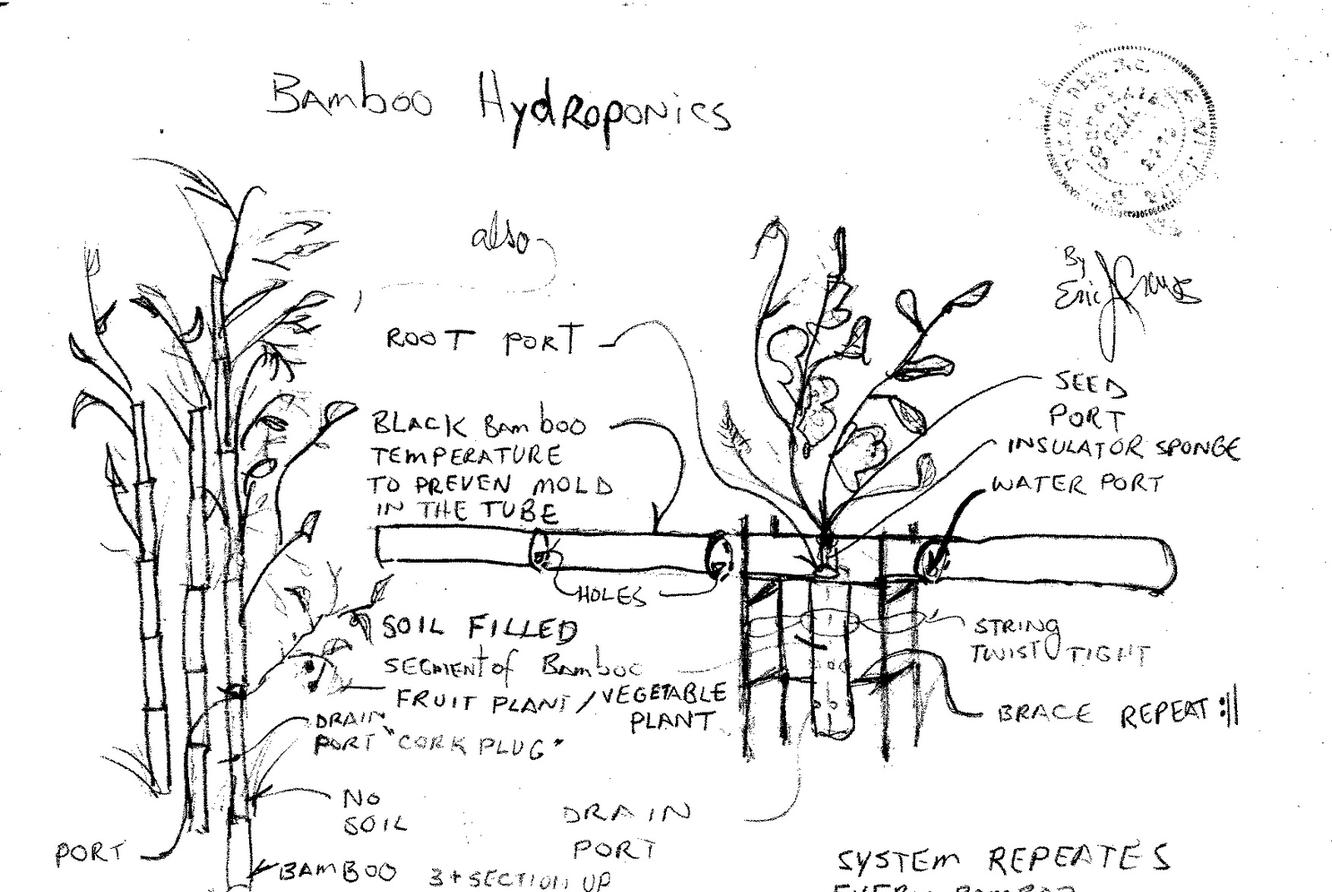 Bamboo Hydroponics
also
By
Eric J
ROOT PORT
SEED
PORT
INSULATOR SPONGE
WATER PORT
BLACK Bamboo
TEMPERATURE
TO PREVEN MOLD
IN THE TUBE
HOLES
SOIL FILLED
SEGMENT of Bamboo
FRUIT PLANT / VEGETABLE
PLANT
STRING
TWIST TIGHT
BRACE REPEAT :||
DRAIN
PORT "CORK PLUG"
NO
SOIL
DRAIN
PORT
PORT
BAMBOO 3+ SECTION UP
SYSTEM REPEATES
EVERY BAMBOO